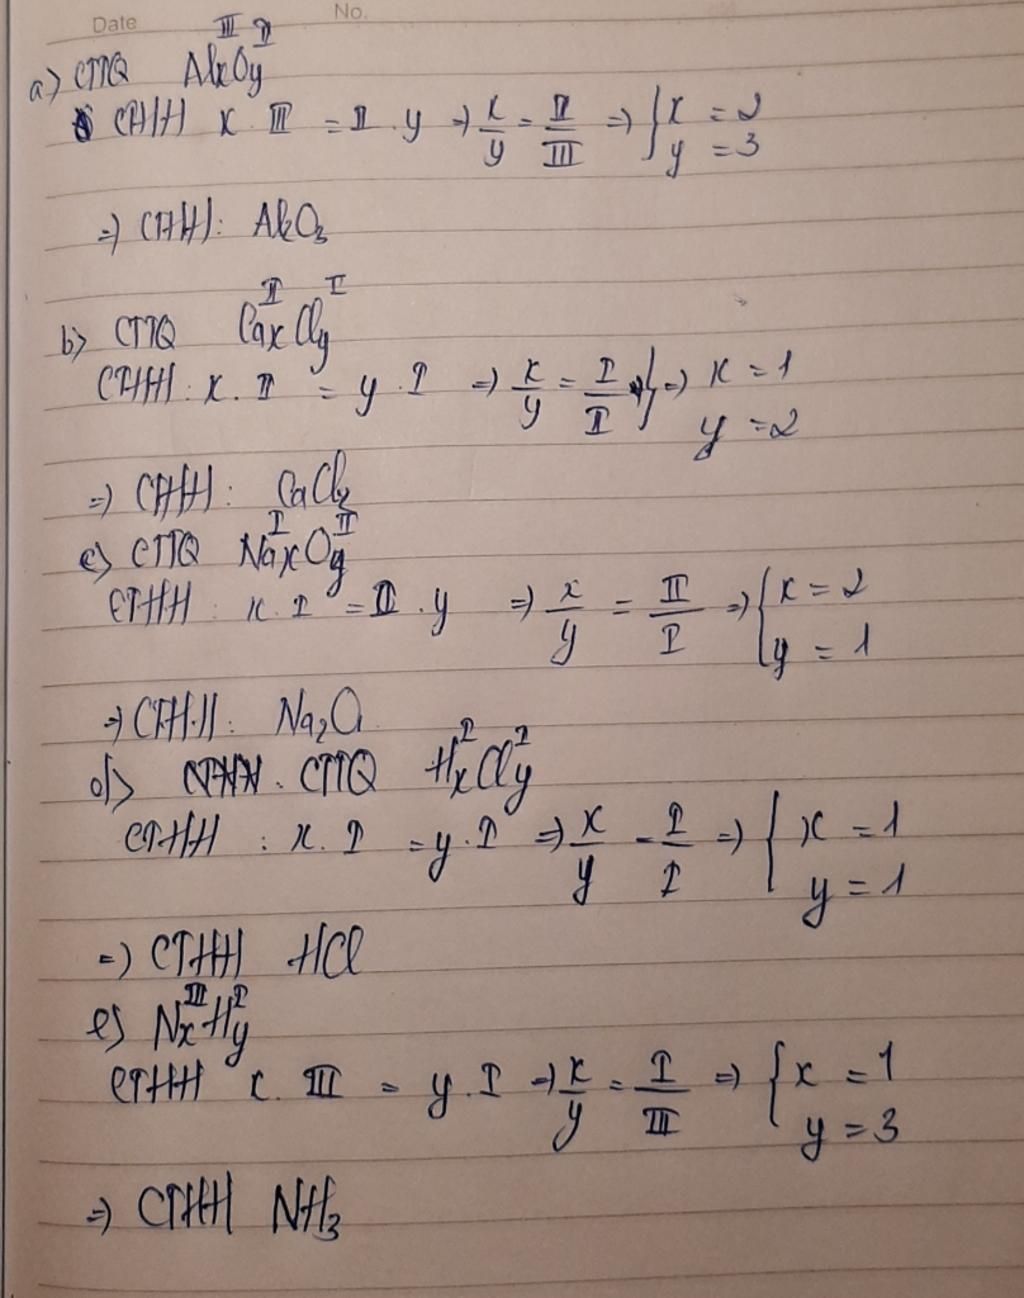 Date No.
III II
a) CTTQ AlxOy
CTHH x . III = II . y => x/y = II/III => { x = 2
y = 3
=> CTHH: Al2O3
II I
b) CTTQ CaxCly
CTHH : x . II = y . I => x/y = I/I } => x = 1
y = 2
=> CTHH : CaCl2
I II
c) CTTQ NaxOy
CTHH : x . I = II . y => x/y = II/I => { x = 2
y = 1
=> CTHH: Na2O
I I
d) CTTQ HxCly
CTHH : x . I = y . I => x/y = I/I => { x = 1
y = 1
=> CTHH HCl
III I
e) NxHy
CTHH x . III = y . I => x/y = I/III => { x = 1
y = 3
=> CTHH NH3